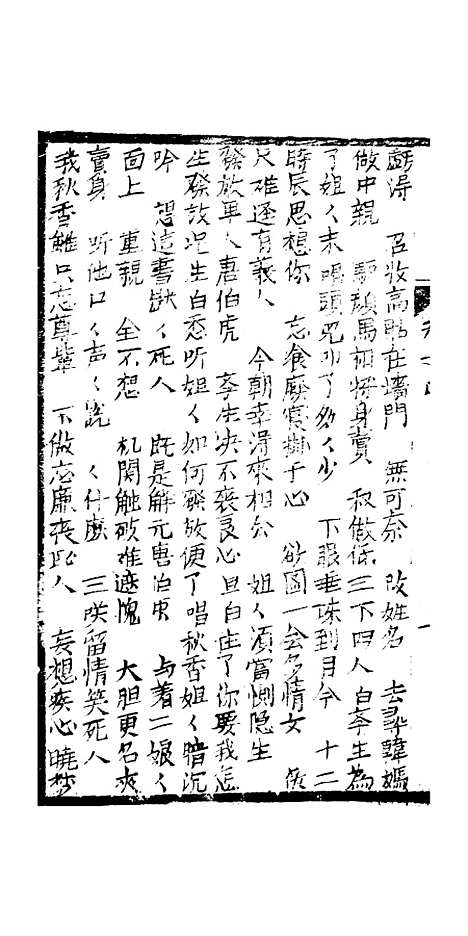 虧得 召收高點在墻門 無可奈 改姓名 去尋韓媽
做中親 騙顏馬 將身賣 叔做低三下四人白李生為
了姐〻未 頭兒叩了多〻少 下眼垂珠到月今 十二
時辰思想你 忘食廢寢掛于心 欲圖一会多情女
只难逐有義人 今朝幸得來相会 姐〻須當惻隐生
發放軍人唐伯虎 李生决不丧良心 旦白住了你要我怎
生發放况生白悉听姐〻如何發放便了唱秋香姐〻暗沉
吟 想這書獃〻死人 既是解元唐伯虎 与着二娘〻
面上 重親 全不想 机関触破难遮愧 大胆更名來
賣身 听他口〻声〻説 〻什麽 三咲留情笑死人
我秋香雖只忘尊卑 不做忘廉丧耻人 妄想疾心曉梦